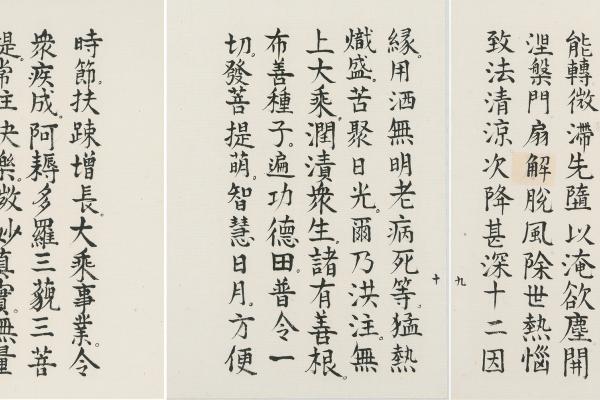 能轉微滯先墮以淹欲塵開
涅槃門扇解脫風除世熱惱
致法清涼次降甚深十二因
九
緣。用洒無明老病死等。猛熱
熾盛。苦聚日光。爾乃洪注。無
上大乘。潤漬衆生。諸有善根。
布善種子。遍功德田。普令一
切。發菩提萌。智慧日月。方便
十
時節。扶踈增長。大乘事業。令
衆疾成。阿耨多羅三藐三菩
提。常住快樂。微妙真實。無量